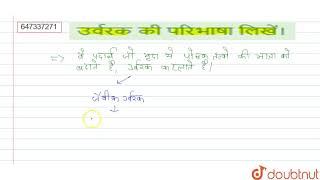 647337271
उर्वरक की परिभाषा लिखें।
=> वे पदार्थ जो मृदा में पोषक तत्वों की मात्रा को
बढ़ाते है, उर्वरक कहलाते है।
जैवीक उर्वरक
doubtnut